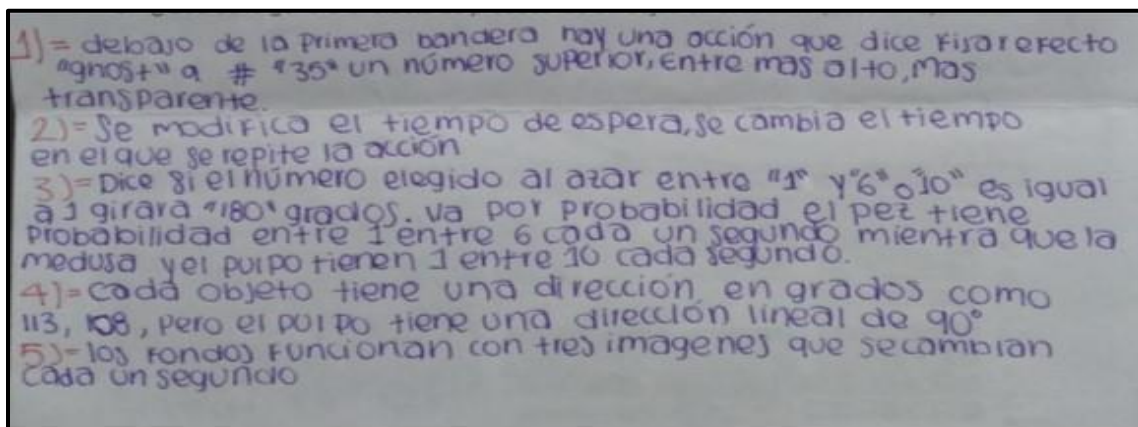 1)= debajo de la primera bandera hay una acción que dice Fijar efecto
"gnost" a # "35" un número superior, Entre mas alto, mas
transparente.
2)= Se modifica el tiempo de espera, se cambia el tiempo
en el que se repite la acción
3)= Dice si el número elegido al azar entre "1" y "6" o "10" es igual
a 1 girara "180" grados. va por probabilidad el pez tiene
Probabilidad entre 1 entre 6 cada un segundo mientra que la
medusa y el pulpo tienen 1 entre 10 cada segundo.
4)= cada objeto tiene una dirección en grados como
113, 108, pero el polpo tiene una dirección lineal de 90°
5)= los Fondos Funcionan con tres imagenes que se cambian
cada un segundo